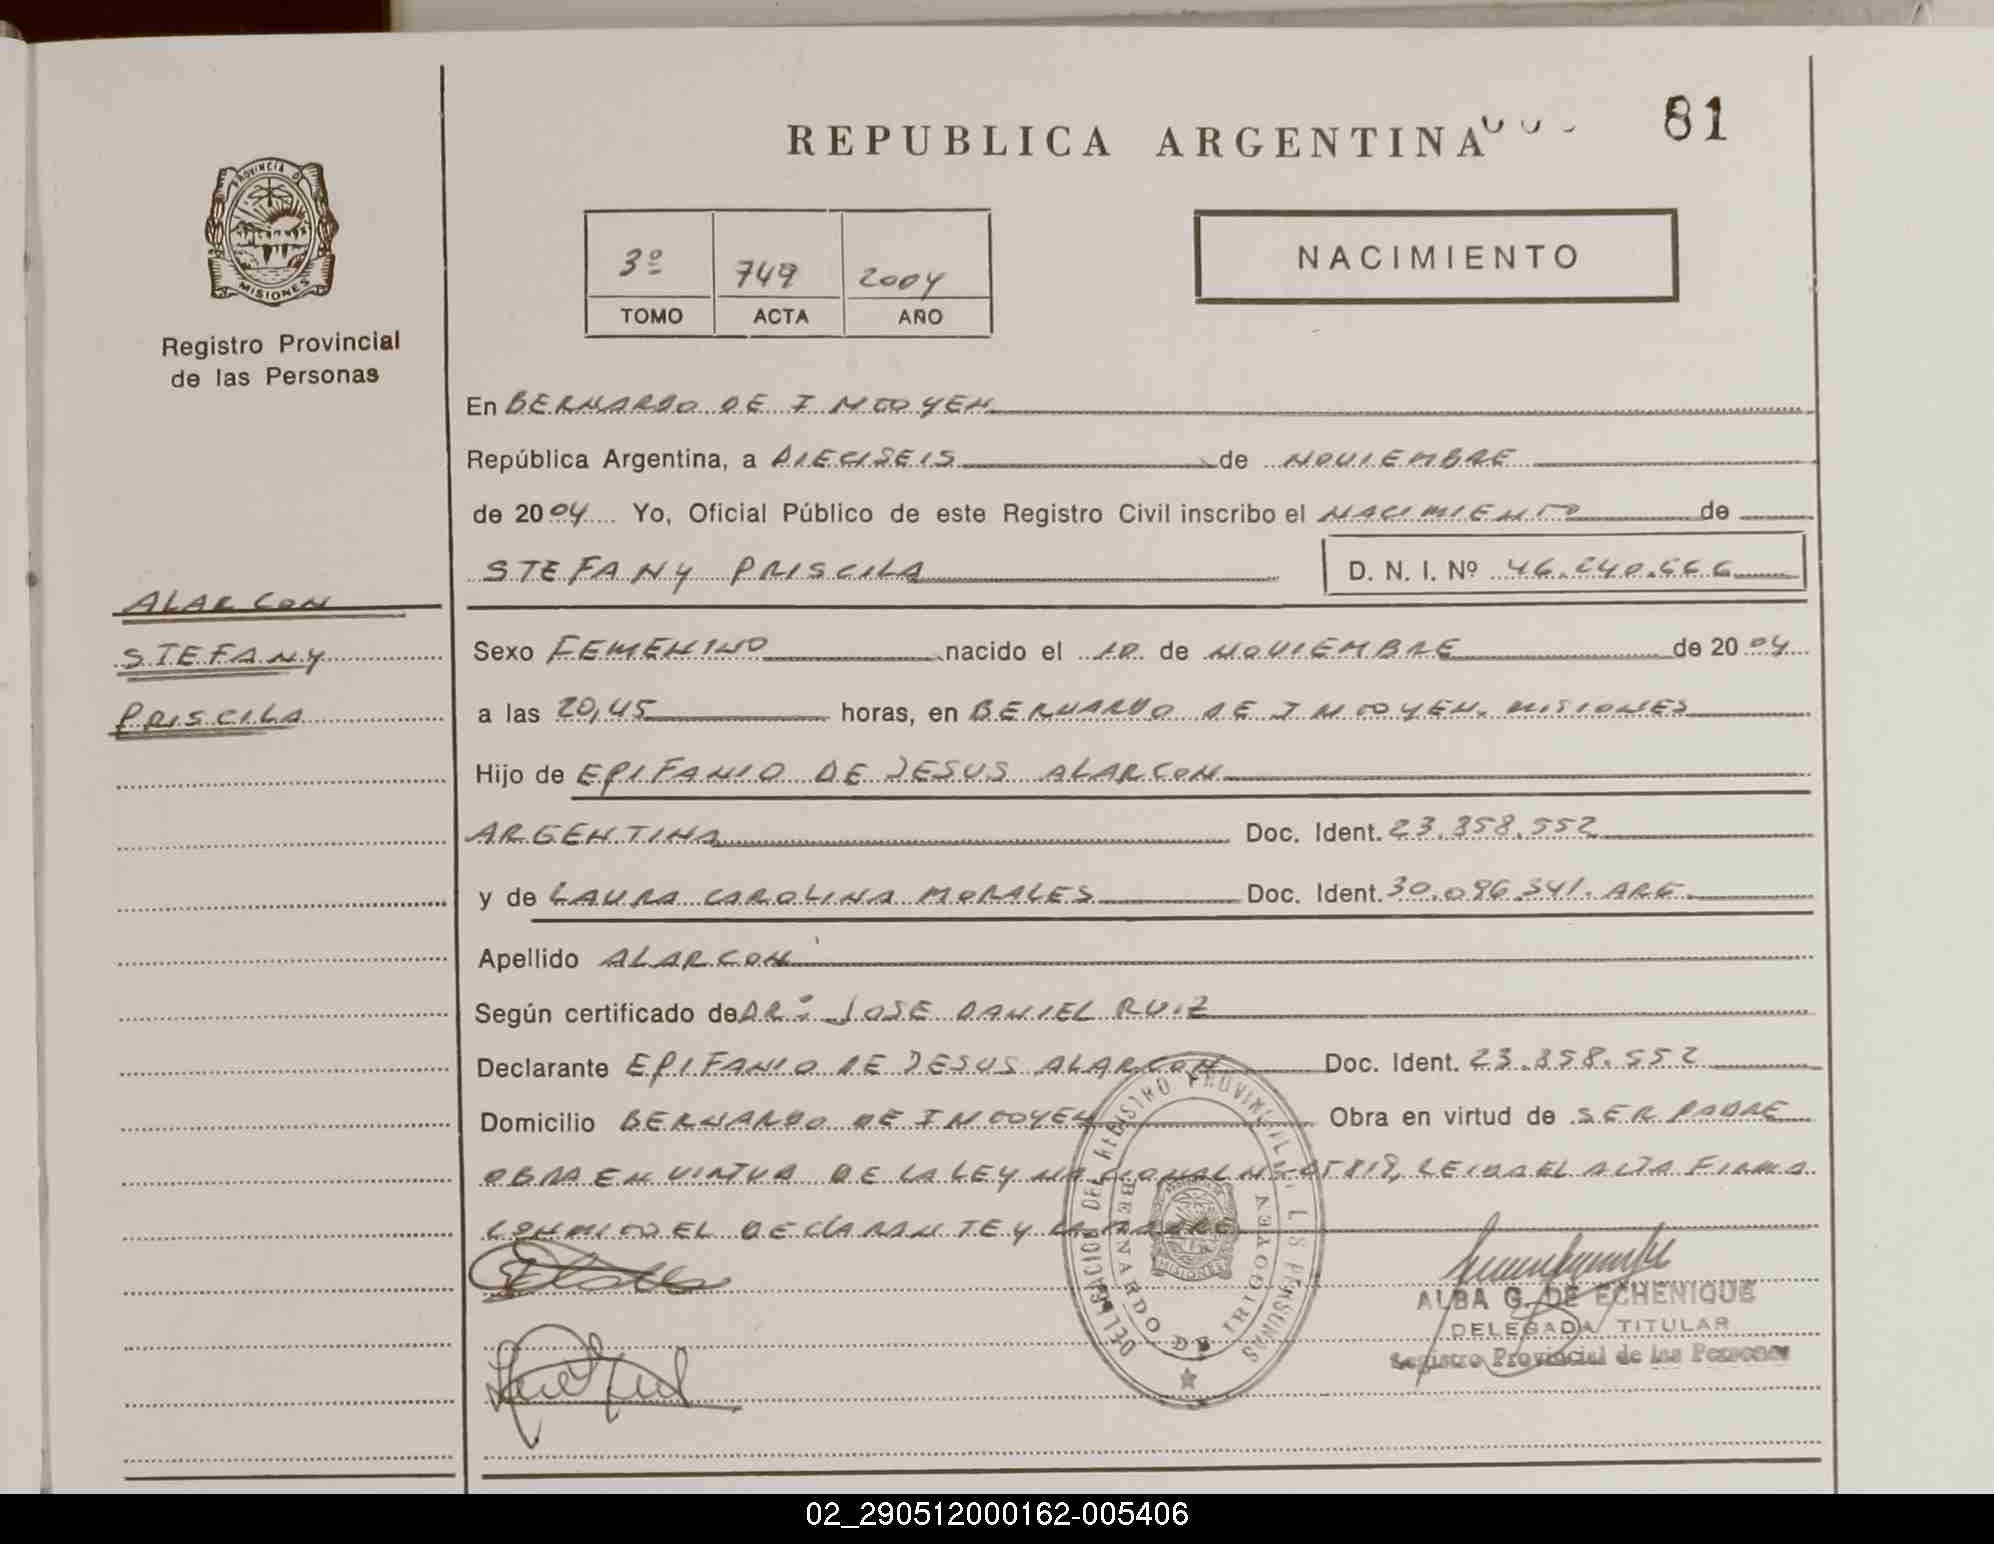 REPUBLICA ARGENTINA 81
PROVINCIA D
MISIONES
Registro Provincial
de las Personas
3º 749 2004
TOMO ACTA AÑO
NACIMIENTO
En BERNARDO DE IRIGOYEN
República Argentina, a DIECISEIS de NOVIEMBRE
de 2004 Yo, Oficial Público de este Registro Civil inscribo el NACIMIENTO de
STEFANY PRISCILA D. N. I. Nº 46.240.
ALARCON
STEFANY
PRISCILA
Sexo FEMENINO nacido el 10 de NOVIEMBRE de 2004
a las 20,45 horas, en BERNARDO DE IRIGOYEN. MISIONES
Hijo de EPIFANIO DE JESUS ALARCON
ARGENTINA Doc. Ident. 23.858.552
y de LAURA CAROLINA MORALES Doc. Ident. 30.096.341. ARG.
Apellido ALARCON
Según certificado de DR: JOSE DANIEL RUIZ
Declarante EPIFANIO DE JESUS ALARCON Doc. Ident. 23.858.552
Domicilio BERNARDO DE IRIGOYEN Obra en virtud de SER PADRE
OBRA EN VIRTUD DE LA LEY NACIONAL LEIDA EL ACTA FIRMA
CONMIGO EL DECLARANTE Y LA MADRE
DELEGACION DEL REGISTRO PROVINCIAL DE LAS PERSONAS
BERNARDO DE IRIGOYEN
MISIONES
ALBA G. DE ECHENIQUE
DELEGADA TITULAR
Registro Provincial de las Personas
02_290512000162-005406